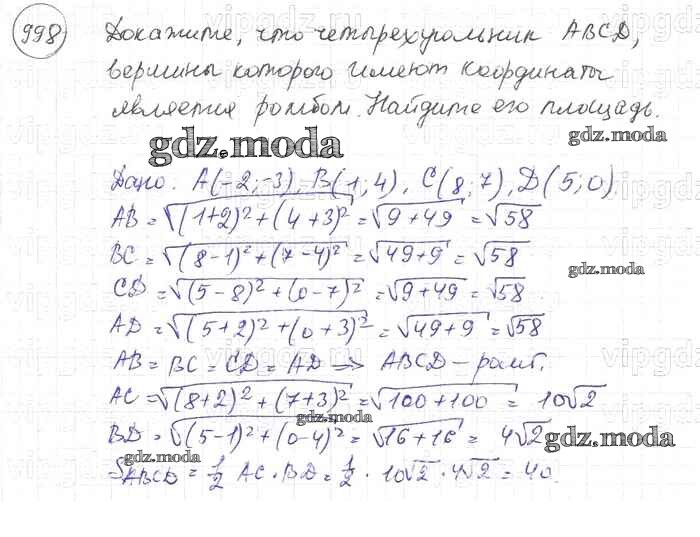 998
Докажите, что четырехугольник ABCD,
вершины которого имеют координаты
является ромбом. Найдите его площадь.
gdz.moda
gdz.moda
Дано: A(-2;-3), B(1;4), C(8;7), D(5;0)
AB = √((1+2)²+(4+3)²) = √(9+49) = √58
BC = √((8-1)²+(7-4)²) = √(49+9) = √58
gdz.moda
CD = √((5-8)²+(0-7)²) = √(9+49) = √58.
AD = √((5+2)²+(0+3)²) = √(49+9) = √58
AB = BC = CD = AD ⇒ ABCD – ромб.
AC = √((8+2)²+(7+3)²) = √(100+100) = 10√2
gdz.moda
BD = √((5-1)²+(0-4)²) = √(16+16) = 4√2
gdz.moda
gdz.moda
S ABCD = 1/2 AC · BD = 1/2 · 10√2 · 4√2 = 40.